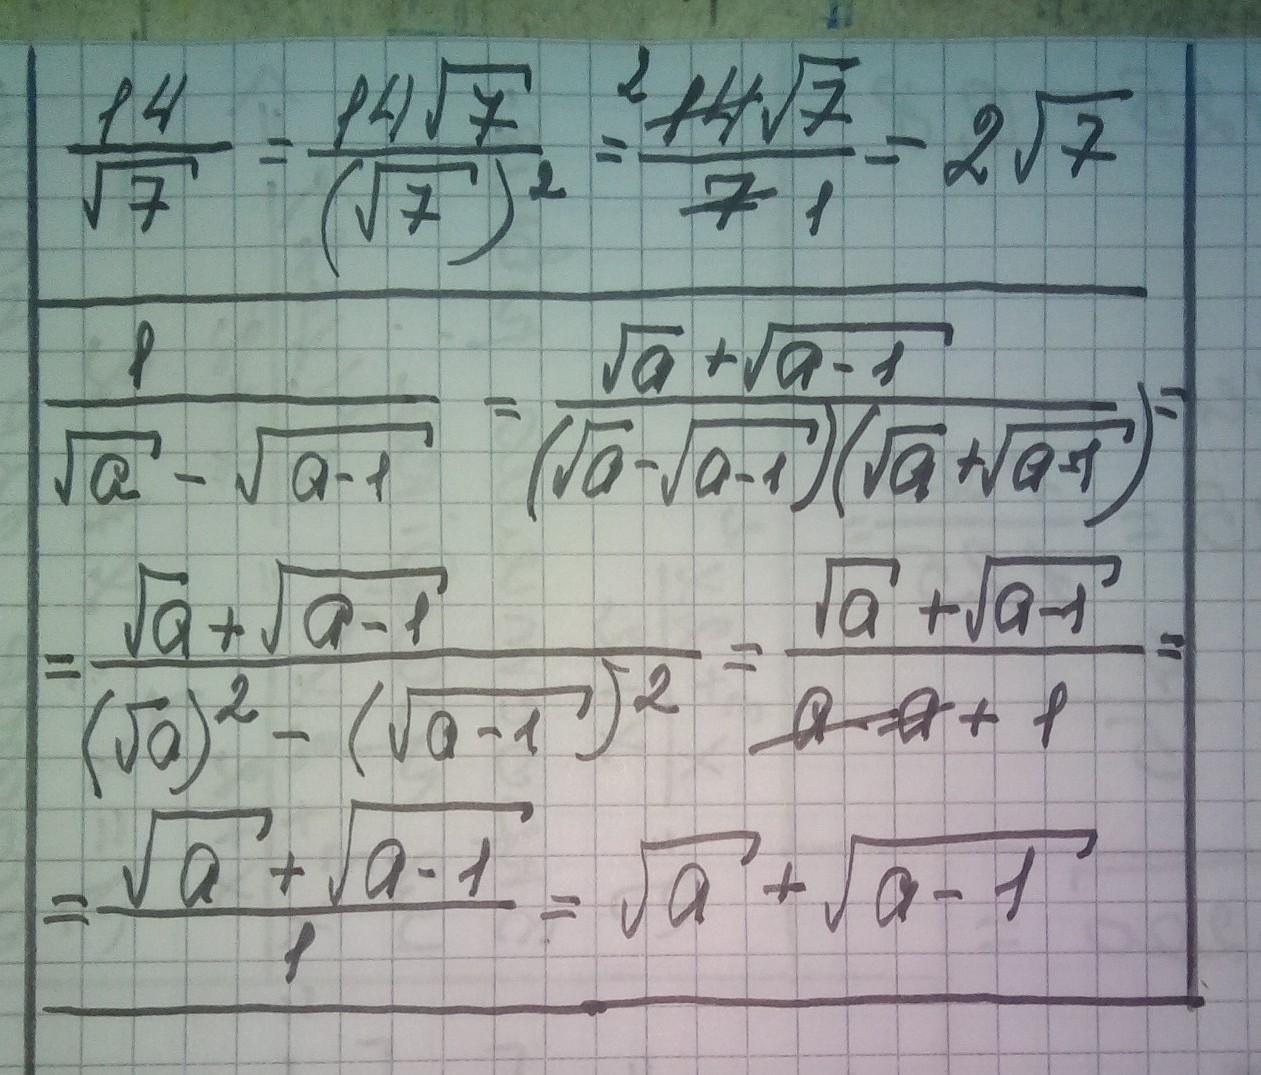 14/√7 = 14√7/(√7)² = ² 14√7/7 1 = 2√7
1/(√a - √(a-1)) = (√a + √(a-1))/((√a - √(a-1))(√a + √(a-1))) =
= (√a + √(a-1))/((√a)² - (√(a-1))²) = (√a + √(a-1))/(a - a + 1) =
= (√a + √(a-1))/1 = √a + √(a-1)